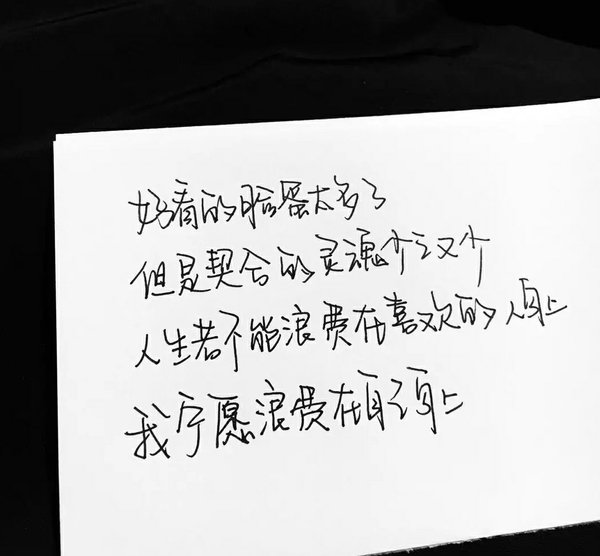 好看的脸蛋太多了
但是契合的灵魂少之又少
人生若不能浪费在喜欢的人身上
我宁愿浪费在自己身上